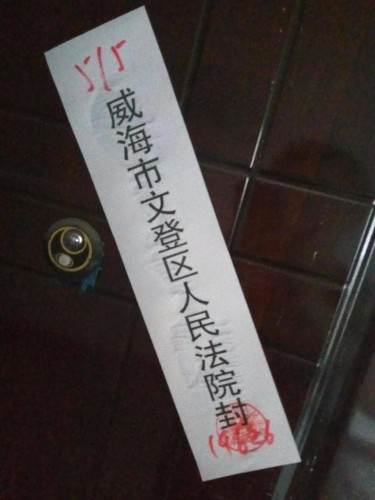 5/5
威海市文登区人民法院封